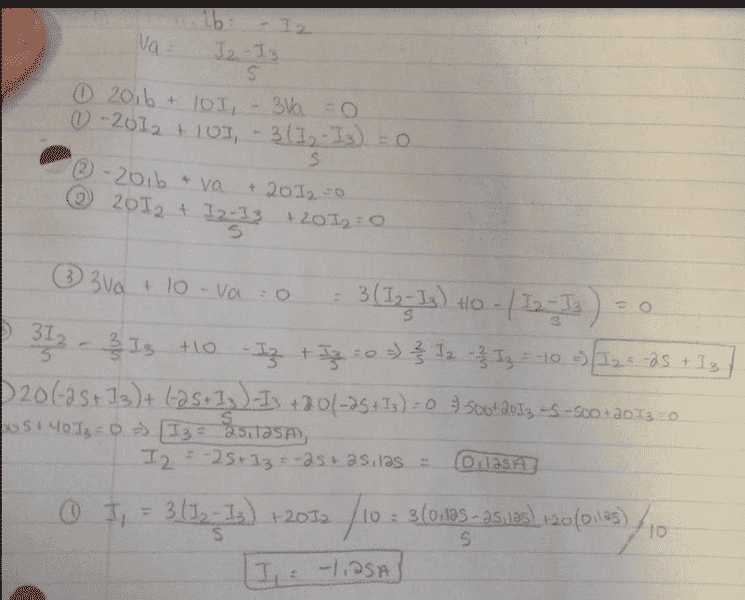 ib = - I2
Va = (I2 - I3)/5
① 20ib + 10I1 - 3Va = 0
① -20I2 + 10I1 - 3(I2 - I3)/5 = 0
② -20ib + Va + 20I2 = 0
② 20I2 + (I2-I3)/5 + 20I2 = 0
③ 3Va + 10 - Va = 0 = 3(I2-I3)/5 +10 - (I2-I3/5) = 0
3I2/5 - 3/5 I3 +10 - I2/5 + I3/5 = 0 => 2/5 I2 - 2/5 I3 = -10 => I2 = -25 + I3
20(-25+I3) + (-25+I3)-I3/5 + 20(-25+I3) = 0 => 500+20I3 -5 -500 +20I3 = 0
005 + 40I3 = 0 => I3 = 25,125A,
I2 = -25+I3 = -25 + 25,125 = 0,125A
① I1 = 3(I2-I3)/5 +20I2 /10 = 3(0,125-25,125)/5 +20(0,125) /10
I1 = -1,25A